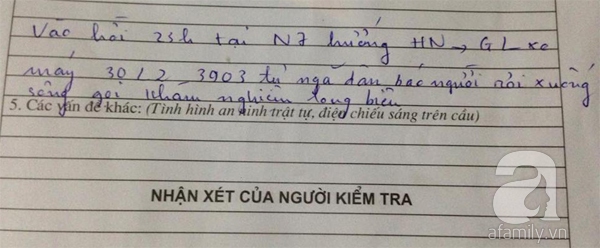 Vào hồi 23h tại N7 hướng HN → GL xe
máy 30/2 3903 tự ngã dân bác người rồi xuống
sông gọi khám nghiệm tong biên
5. Các vấn đề khác: (Tình hình an ninh trật tự, điện chiếu sáng trên cầu)
NHẬN XÉT CỦA NGƯỜI KIỂM TRA
a
afamily.vn